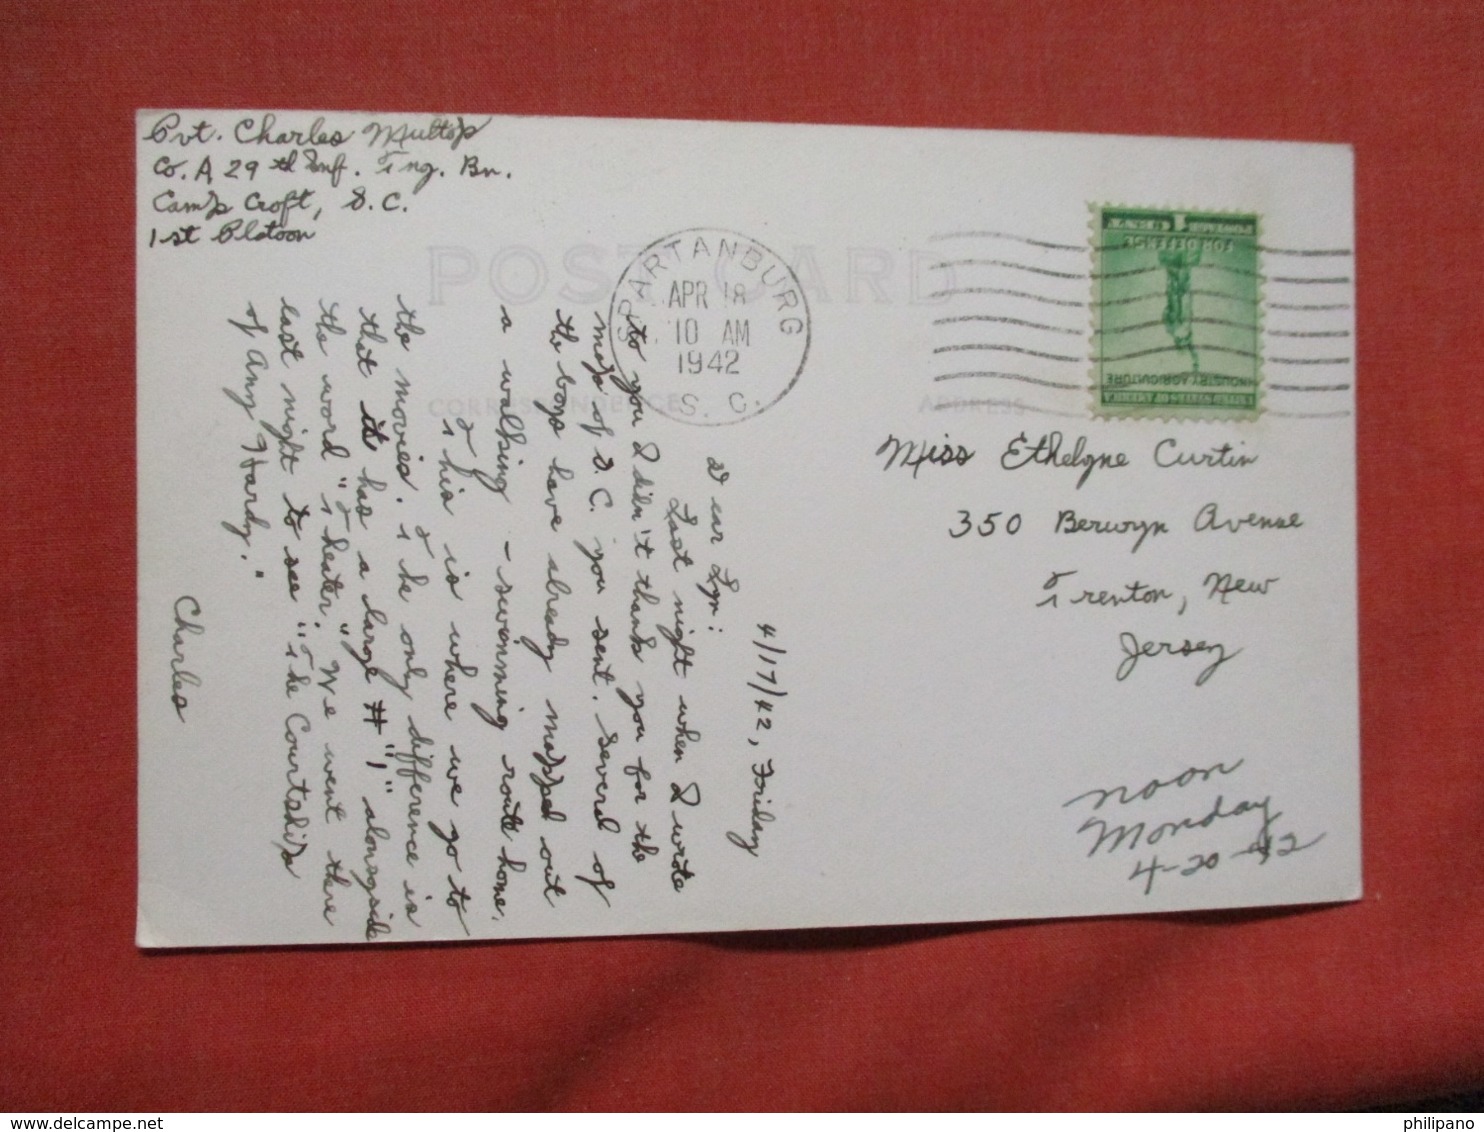 Pvt. Charles Multop
Co. A 29th Inf. Tng. Bn.
Camp Croft, S.C.
1st Platoon
POST CARD
CORRESPONDENCE
ADDRESS
SPARTANBURG
APR 18
10 AM
1942
S. C.
1 CENT 1
FOR DEFENSE
INDUSTRY AGRICULTURE
UNITED STATES OF AMERICA
4/17/42, Friday
Dear Lyn:
Last night when I wrote
to you I didn't thank you for the
map of S.C. you sent. Several of
the boys have already mapped out
a walking - swimming route home.
This is where we go to
the movies. The only difference is
that it has a large # "1" alongside
the word "Theater." We went there
last night to see "The Courtship
of Any Hardy."
Charles
Miss Ethelyne Curtin
350 Berwyn Avenue
Trenton, New
Jersey
noon
Monday
4-20-42
philipano